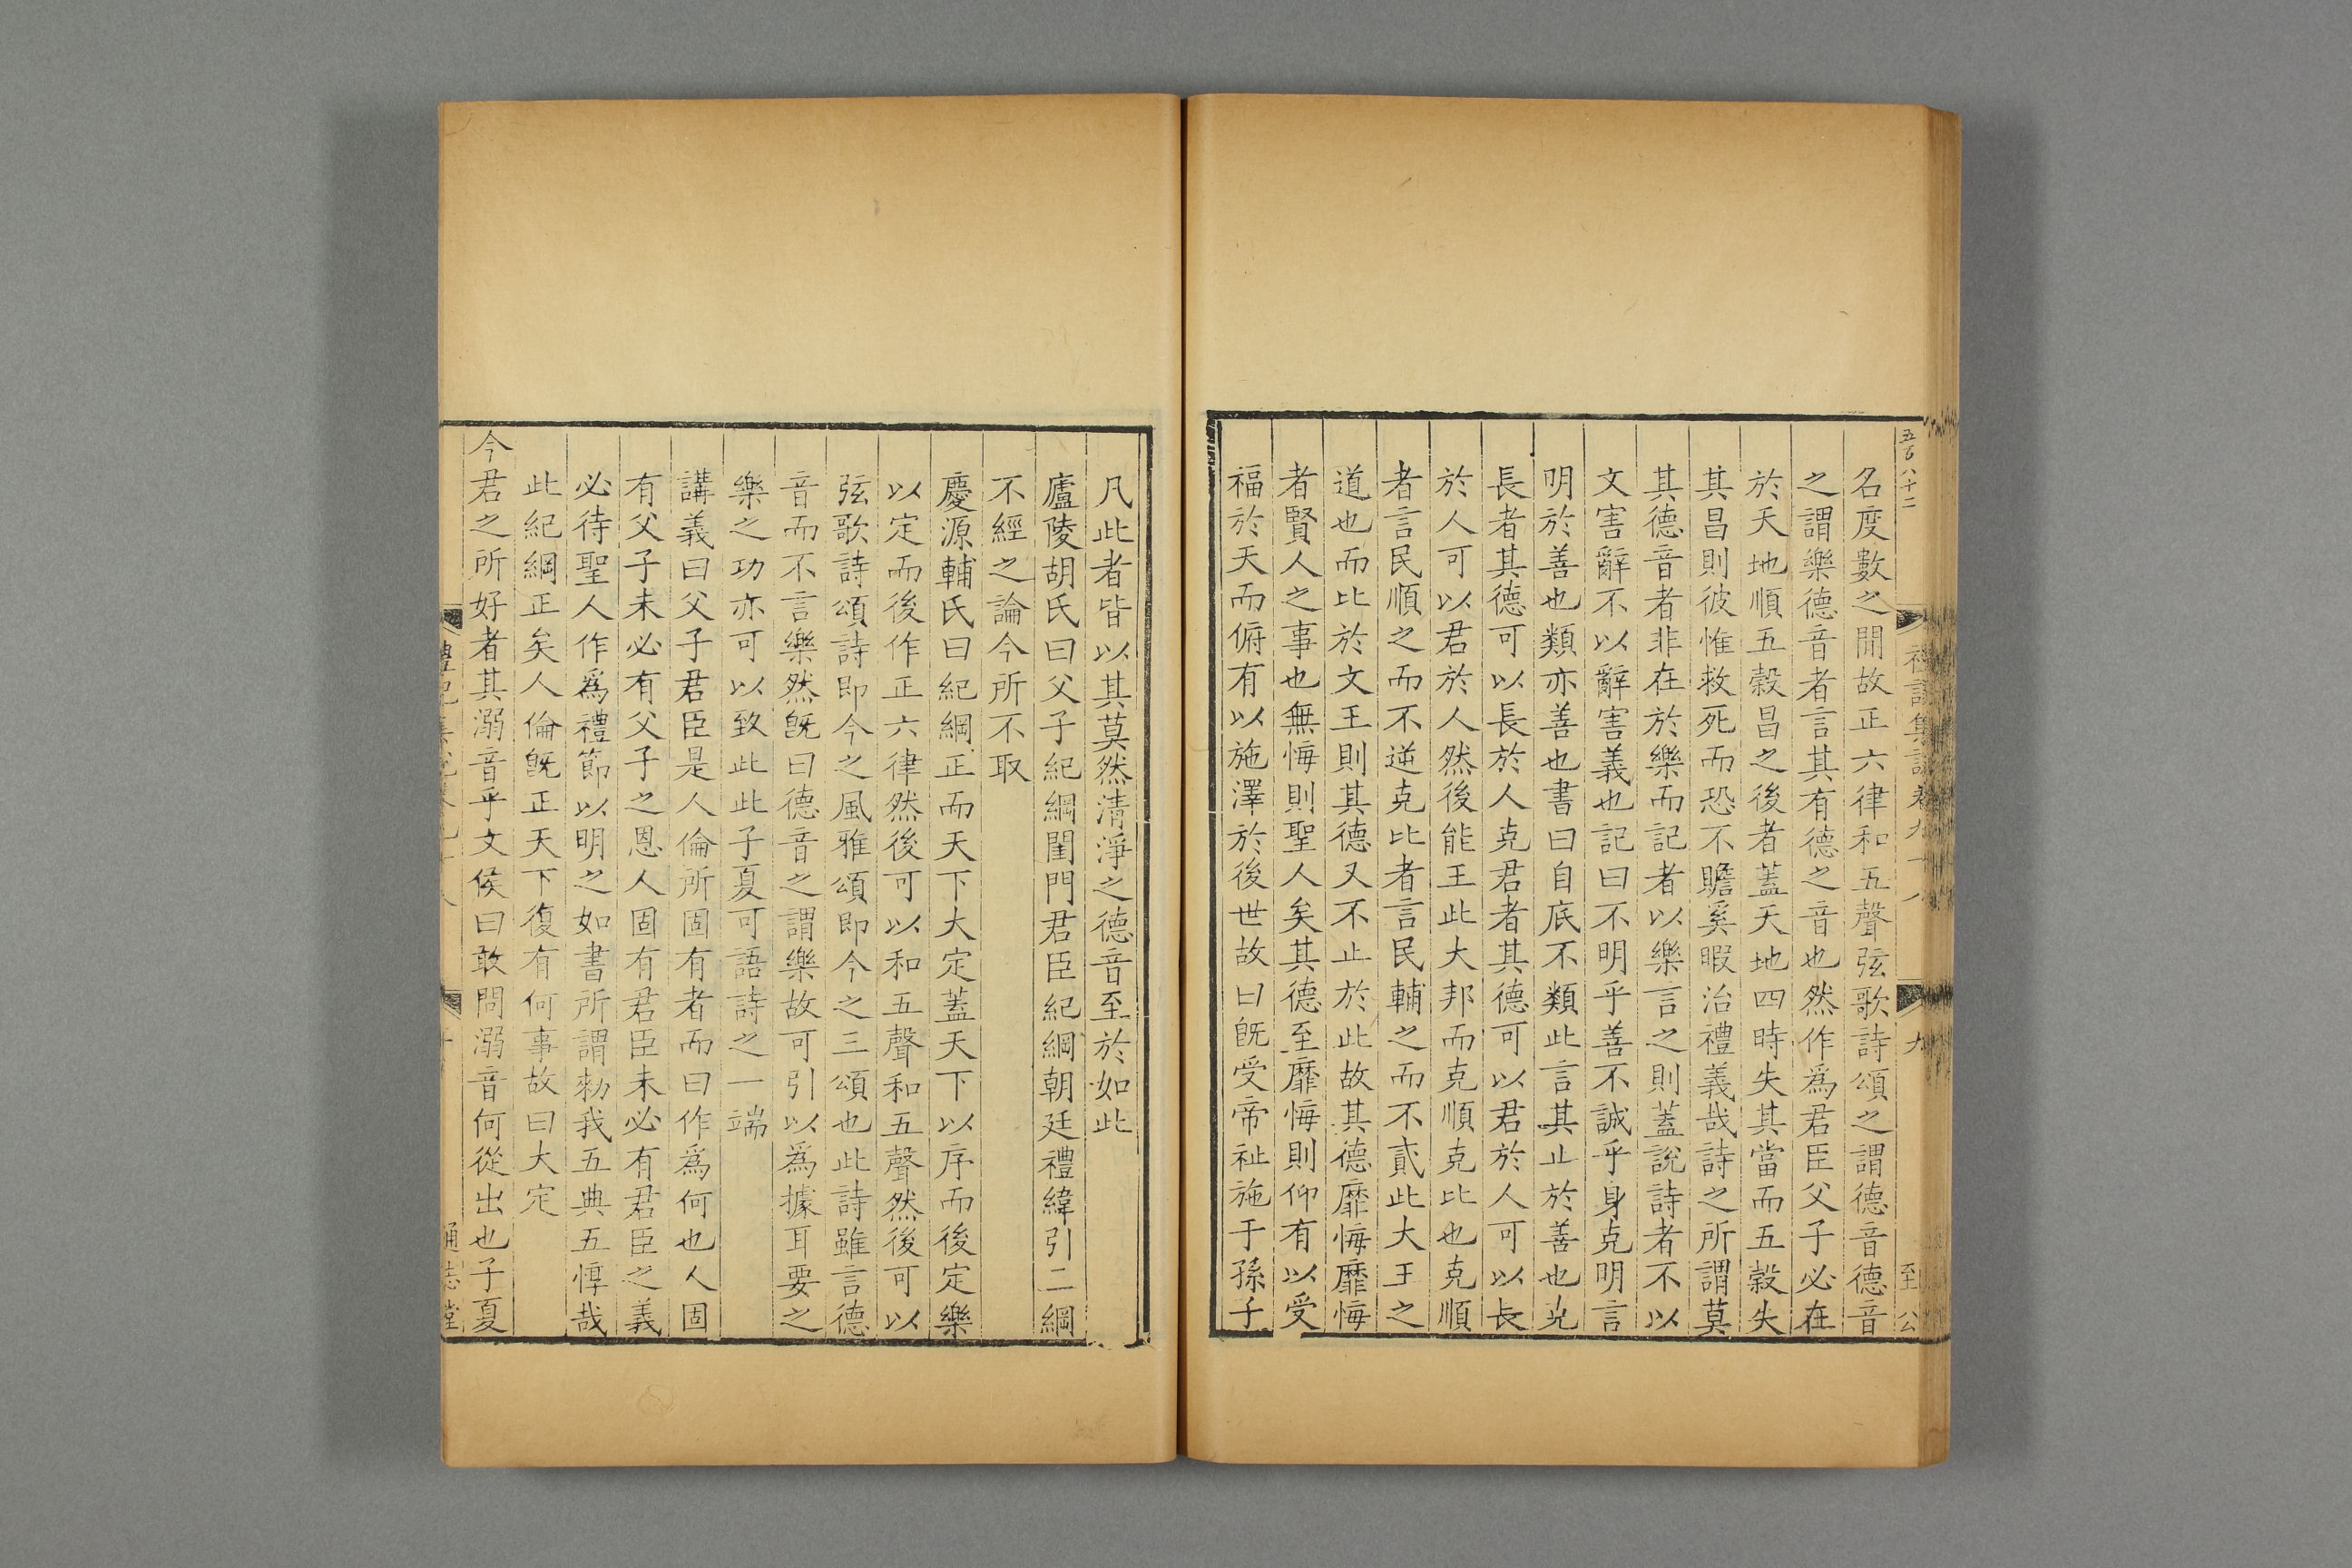 五百八十二
禮記集說卷九十八
九
至公
名度數之間故正六律和五聲弦歌詩頌之謂德音德音
之謂樂德音者言其有德之音也然作爲君臣父子必在
於天地順五穀昌之後者蓋天地四時失其當而五穀失
其昌則彼惟救死而恐不贍奚暇治禮義哉詩之所謂莫
其德音者非在於樂而記者以樂言之則蓋說詩者不以
文害辭不以辭害義也記曰不明乎善不誠乎身克明言
明於善也類亦善也書曰自底不類此言其止於善也克
長者其德可以長於人克君者其德可以君於人可以長
於人可以君於人然後能王此大邦而克順克比也克順
者言民順之而不逆克比者言民輔之而不貳此大王之
道也而比於文王則其德又不止於此故其德靡悔靡悔
者賢人之事也無悔則聖人矣其德至靡悔則仰有以受
福於天而俯有以施澤於後世故曰旣受帝祉施于孫子
凡此者皆以其莫然清淨之德音至於如此
廬陵胡氏曰父子紀綱閨門君臣紀綱朝廷禮緯引二綱
不經之論今所不取
慶源輔氏曰紀綱正而天下大定蓋天下以序而後定樂
以定而後作正六律然後可以和五聲和五聲然後可以
弦歌詩頌詩即今之風雅頌即今之三頌也此詩雖言德
音而不言樂然旣曰德音之謂樂故可引以爲據耳要之
樂之功亦可以致此此子夏可語詩之一端
講義曰父子君臣是人倫所固有者而曰作爲何也人固
有父子未必有父子之恩人固有君臣未必有君臣之義
必待聖人作爲禮節以明之如書所謂勑我五典五惇哉
此紀綱正矣人倫旣正天下復有何事故曰大定
今君之所好者其溺音乎文侯曰敢問溺音何從出也子夏
通志堂